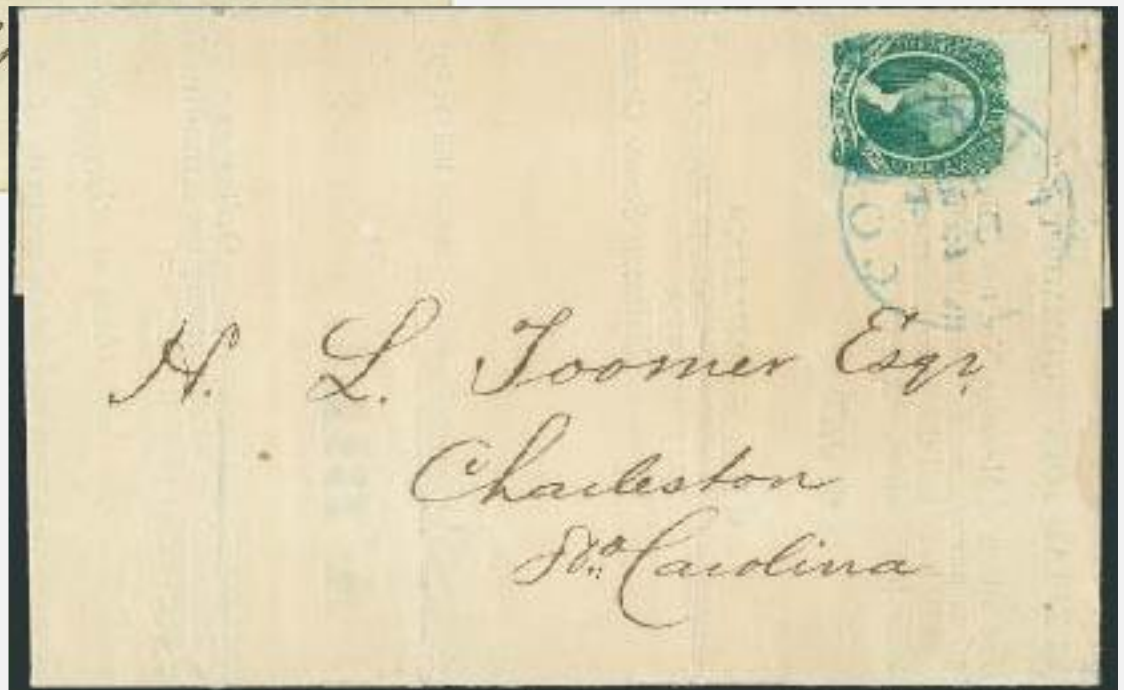 H. L. Toomer Esqr.
Charleston
So. Carolina